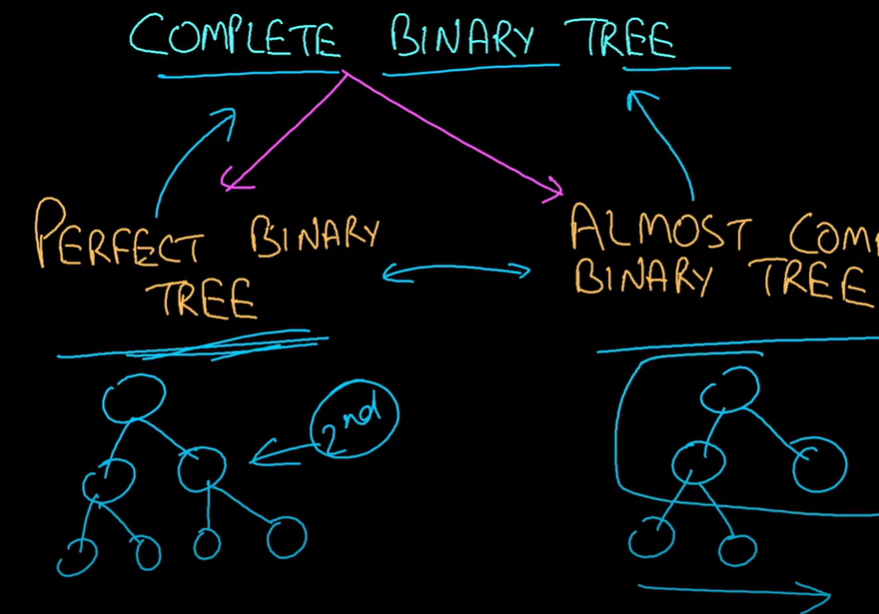 COMPLETE BINARY TREE
PERFECT BINARY
TREE
ALMOST COM
BINARY TREE
2nd